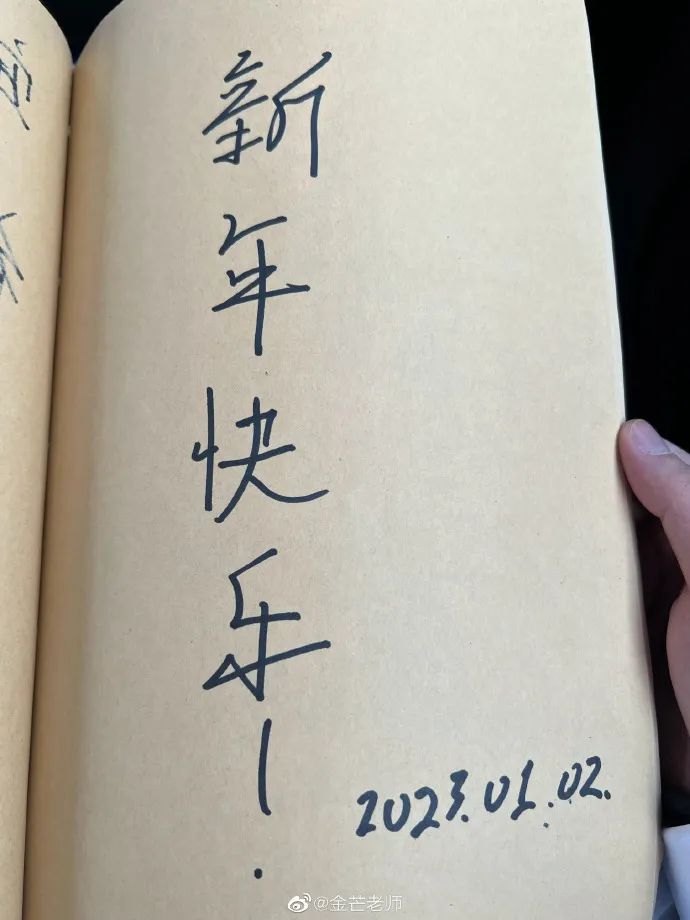 新年快乐!
2023.01.02.
@金芒老师